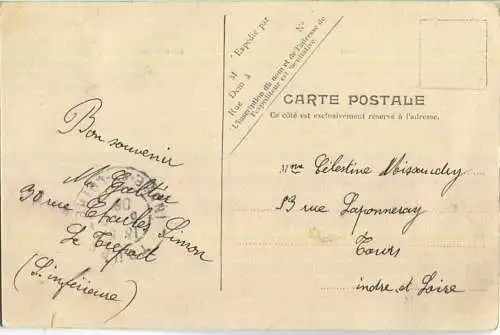 * Expédié par
M
Dem à
Rue N°
L'inscription du nom et de l'adresse de
l'expéditeur est facultative.
CARTE POSTALE
Ce côté est exclusivement réservé à l'adresse.
Bon souvenir
30 rue Charles Simon
Le Treport
(S. inférieure)
Célestine
13 rue Laponneray
Tours
indre et Loire